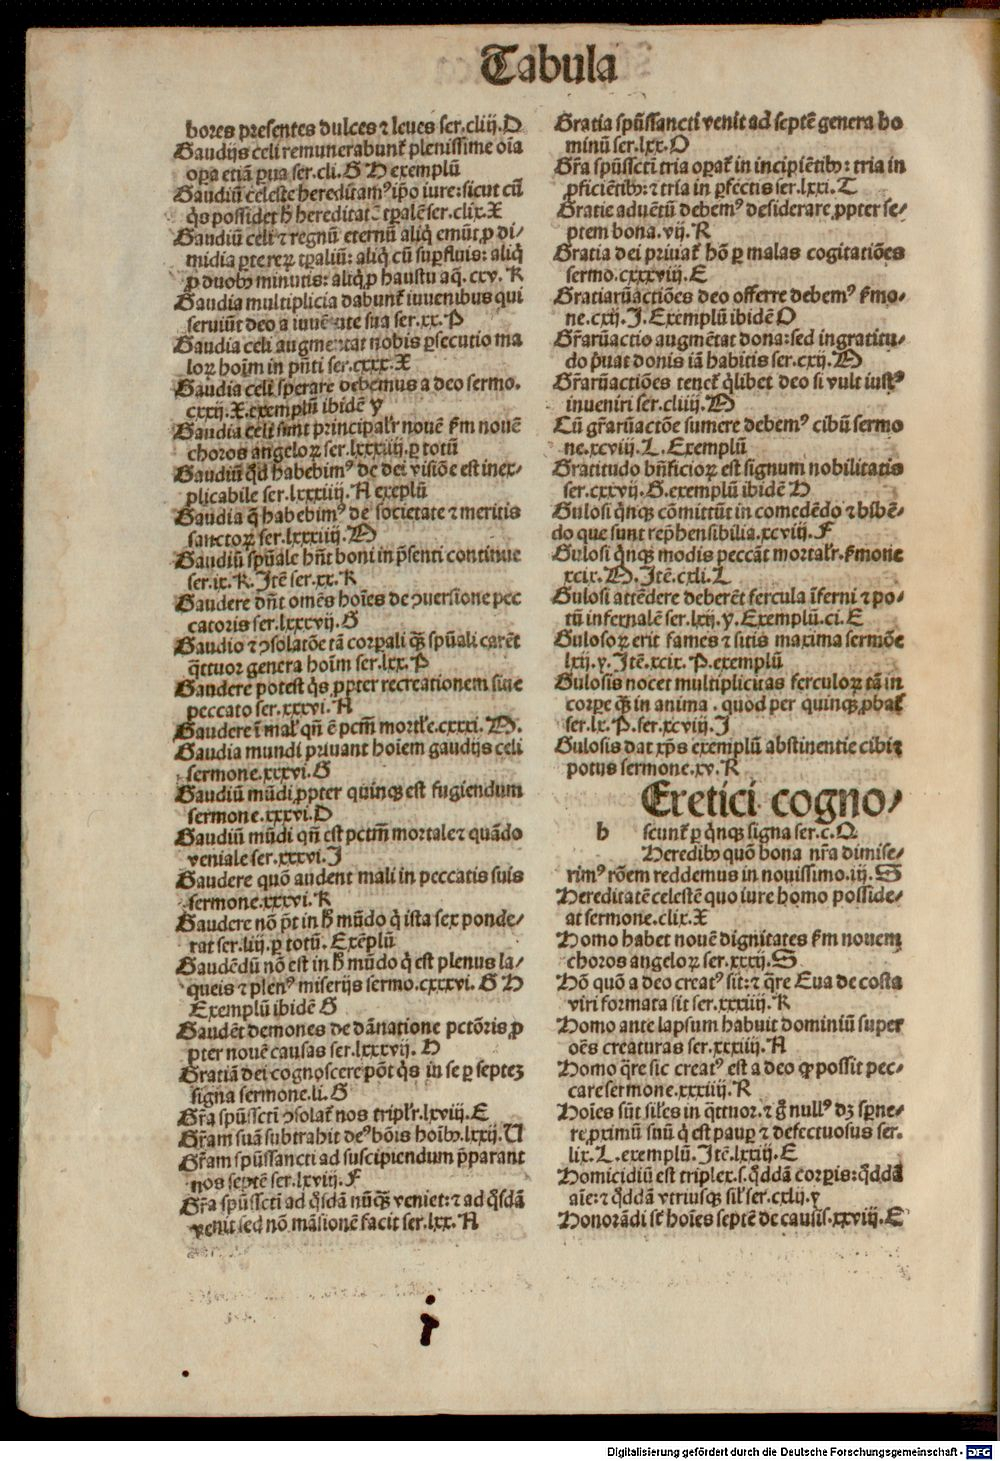 Tabula
bores presentes dulces ⁊ leues ser.cliij.O
Gaudijs celi remunerabunt᷑ plenissime oīa
oꝑa etiā ꝑua ser.cli.G H exemplū
Gaudiū celeste heredūtamꝰ ip̄o iure: sicut cū
q̇s possidet hereditatē tꝑalē ser.clix.X
Gaudiū celi ⁊ regnū eternū aliq̇ emūt ꝓ di/
midia ꝑte reꝝ tꝑaliū: aliq̇ cū suꝑfluis: aliq̇
ꝓ duobꝫ minutis: aliq̇ ꝓ haustu aq̄.ccv.K
Gaudia multiplicia dabunt᷑ iuuenibus qui
seruiūt deo a iuuētute sua ser.xx.P
Gaudia celi augmentat nobis ꝑsecutio ma
loꝝ hoīm in p̄nti ser.cxxx.X
Gaudia celi sperare debemus a deo sermo.
cxxij.X.exemplū ibidē y
Gaudia celi sunt principalr̄ nouē ẜm nouē
choros angeloꝝ ser.lxxxiiij.ꝑ totū
Gaudiū qd̄ habebimꝰ de dei visiōe est inex/
plicabile ser.lxxxiiij.A exēplū
Gaudia q̄ habebimꝰ de societate ⁊ meritis
sanctoꝝ ser.lxxxiiij.M
Gaudiū spūale hn̄t boni in p̄senti continue
ser.ix.K.Itē ser.xx.K
Gaudere dn̄t omēs hoīes de ꝯuersione pec
catoris ser.lxxxvij.G
Gaudio ⁊ ꝯsolatōe tā corꝑali qꝫ̄ spūali carēt
q̄ttuor genera hoīm ser.lxx.P
Gaudere potest q̇s ꝓpter recreationem sine
peccato ser.xxxvi.A
Gaudere ī mal᷑ qn̄ ē pcm̄ mortl̄e.cxxxi.M.
Gaudia mundi priuant hoīem gaudijs celi
sermone.xxxvi.G
Gaudiū mūdi ꝓpter quinqꝫ est fugiendum
sermone.xxxvi.D
Gaudiū mūdi qn̄ est pctm̄ mortale ⁊ quādo
veniale ser.xxxvi.I
Gaudere quō audent mali in peccatis suis
sermone.xxxvi.K
Gaudere nō p̄t in h̄ mūdo q̇ ista sex ponde/
rat ser.liij.ꝑ totū. Exēplū
Gaudēdū nō est in h̄ mūdo q̇ est plenus la/
queis ⁊ plenꝰ miserijs sermo.cxxxvi.G H
Exemplū ibidē G
Gaudēt demones de dānatione pctōris ꝓ
pter nouē causas ser.lxxxvij.H
Gratiā dei cognoscere pōt q̇s in se ꝑ septeꝫ
signa sermone.li.G
Gr̄a spūssctī ꝯsolat᷑ nos triplr̄.lxviij.E
Gr̄am suā subtrahit deꝰ hōis hoībꝫ.lxxij.U
Gr̄am spūssancti ad suscipiendum p̄parant
nos septē ser.lxviij.F
Gr̄a spūssctī ad q̇sdā nūqꝫ̄ veniet: ⁊ ad q̇sdā
venit sed nō māsionē facit ser.lxx.A
Gratia spūssancti venit ad septē genera ho
minū ser.lxx.O
Gr̄a spūssctī tria oꝑat᷑ in incipiētibꝫ: tria in
ꝓficiētibꝫ: ⁊ tria in ꝑfectis ser.lxxi.T
Gratie aduētū debemꝰ desiderare ꝓpter se/
ptem bona.vij.R
Gratia dei priuat᷑ hō ꝑ malas cogitatiōes
sermo.cxxxviij.E
Gratiarūactiōes deo offerre debemꝰ ẜmo-
ne.cxij.I.Exemplū ibidē O
Gr̄aruactio augmētat dona: sed ingratitu-
do p̄uat donis iā habitis ser.cxij.M
Gr̄aruactiōes tenet᷑ q̇libet deo si vult iustꝰ
inueniri ser.cliiij.M
Cū gr̄aruactōe sumere debemꝰ cibū sermo
ne.xcviij.L.Exemplū
Gratitudo bn̄ficioꝝ est signum nobilitatis
ser.cxxvij.G.exemplū ibidē H
Gulosi q̇nqꝫ cōmittūt in comedēdo ⁊ bibē-
do que sunt rep̄hensibilia.xcviij.F
Gulosi q̇nqꝫ modis peccāt mortalr̄.ẜmone
xcix.M.Itē.cxli.L
Gulosi attēdere deberēt fercula īferni ⁊ po-
tū infernalē ser.lxij.y.Exemplū.ci.E
Gulosoꝝ erit fames ⁊ sitis maxima sermōe
lxij.y.Itē.xcix.P.exemplū
Gulosis nocet multiplicitas ferculoꝝ tā in
corꝑe qꝫ̄ in anima.quod per quinqꝫ ꝓbat᷑
ser.lx.P.ser.xcviij.I
Gulosis dat xp̄s exemplū abstinentie cibi ⁊
potus sermone.xv.K
Eretici cogno/
h scunt᷑ ꝑ q̇nqꝫ signa ser.c.Q
Heredibꝫ quō bona nr̄a dimise/
rimꝰ rōem reddemus in nouissimo.iij.S
Hereditatē celestē quo iure homo posside-
at sermone.clix.X
Homo habet nouē dignitates ẜm nouem
choros angeloꝝ ser.xxxij.S
Hō quō a deo creatꝰ sit: ⁊ q̄re Eua de costa
viri formata sit ser.xxxiiij.K
Homo ante lapsum habuit dominiū super
oēs creaturas ser.xxxiiij.A
Homo q̄re sic creatꝰ est a deo ꝙ possit pec-
care sermone.xxxiiij.R
Hoīes sūt sil᷑es in q̄ttuor.⁊ g̊ nullꝰ dꝫ sꝑne-
re ꝓximū suū q̇ est pauꝑ ⁊ defectuosus ser.
lix.L.exemplū.Itē.lxxiij.E
Homicidiū est triplex.s.q̇ddā corꝑis: q̇ddā
aīe: ⁊ q̇ddā vtriusqꝫ sil᷑ ser.cxlij.y
Honorādi st̄ hoīes septē de causis.xxviij.E
i
Digitalisierung gefördert durch die Deutsche Forschungsgemeinschaft - DFG